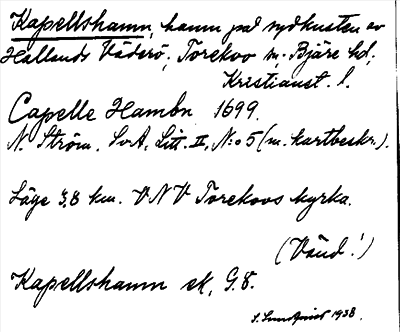 Kapellshamn, hamn på sydkusten av
Hallands Väderö, Torekov sn. Bjäre hd,
Kristianst. l.
Capelle Hambn 1699.
N. Ström. SvA, Litt. II, N:o 5 (m. kartbeskr.).
Läge 3,8 km. VNV Torekovs kyrka.
(Vänd!)
Kapellshamn ek, G.8.
S. Lundqvist 1938.